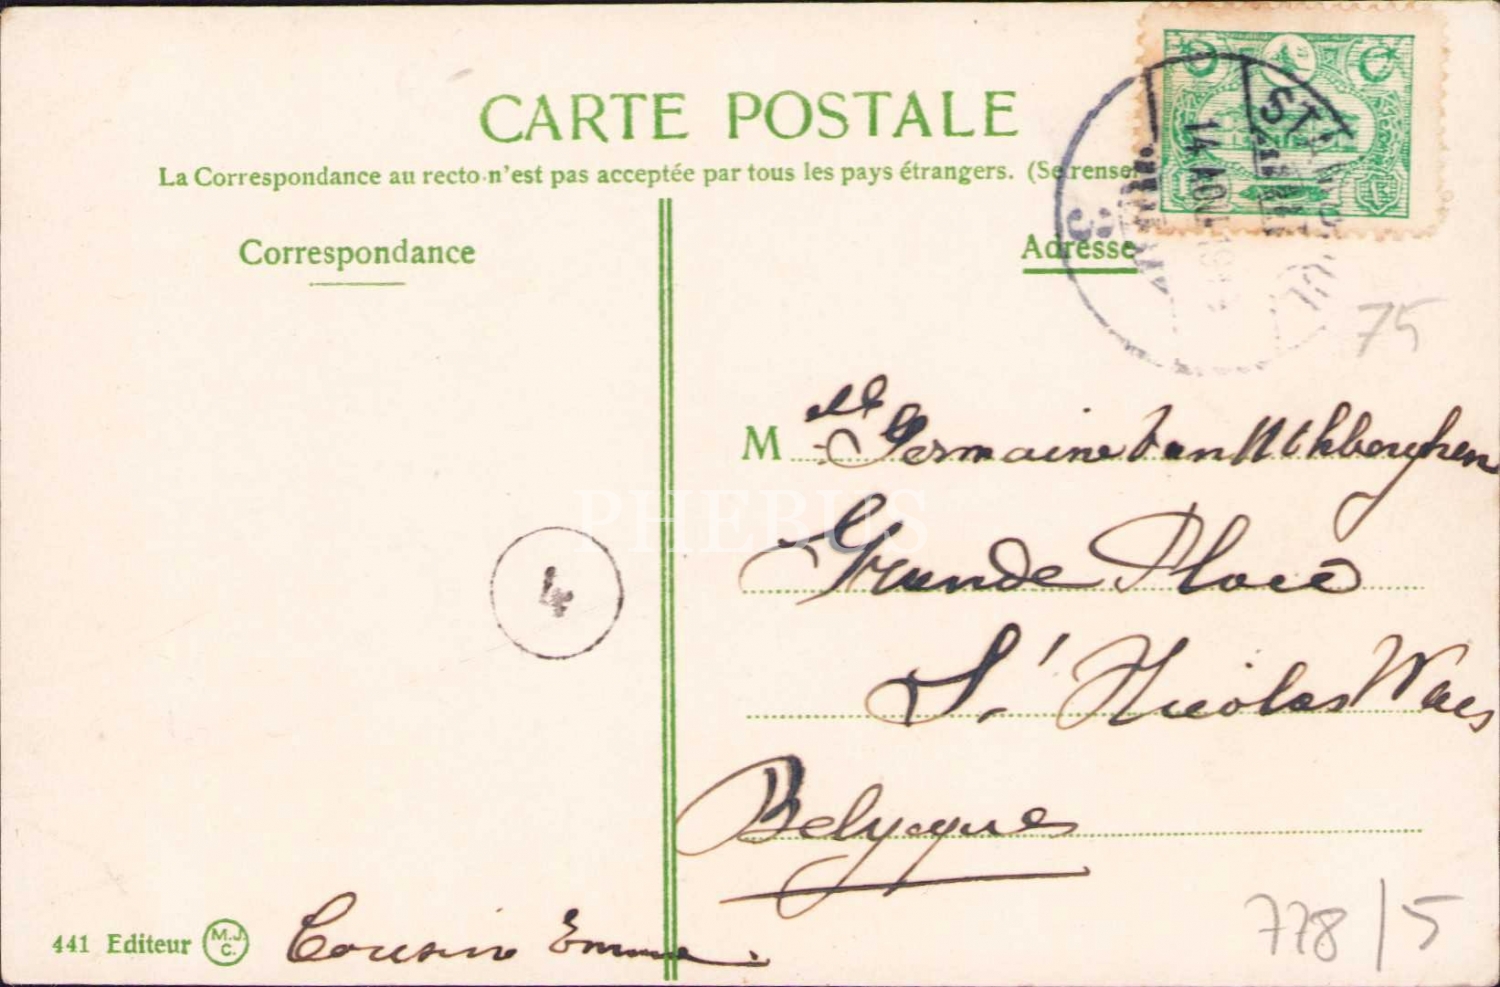 CARTE POSTALE
La Correspondance au recto n'est pas acceptée par tous les pays étrangers. (Se rensei
Correspondance
Adresse
STAMBOUL
14 AOU 19
3
75
M elle Germaine Van
Grande Place
St Nicolas Waes
Belgique
4
PHEBUS
441 Editeur M.J.C.
Cousin Emme
778/5